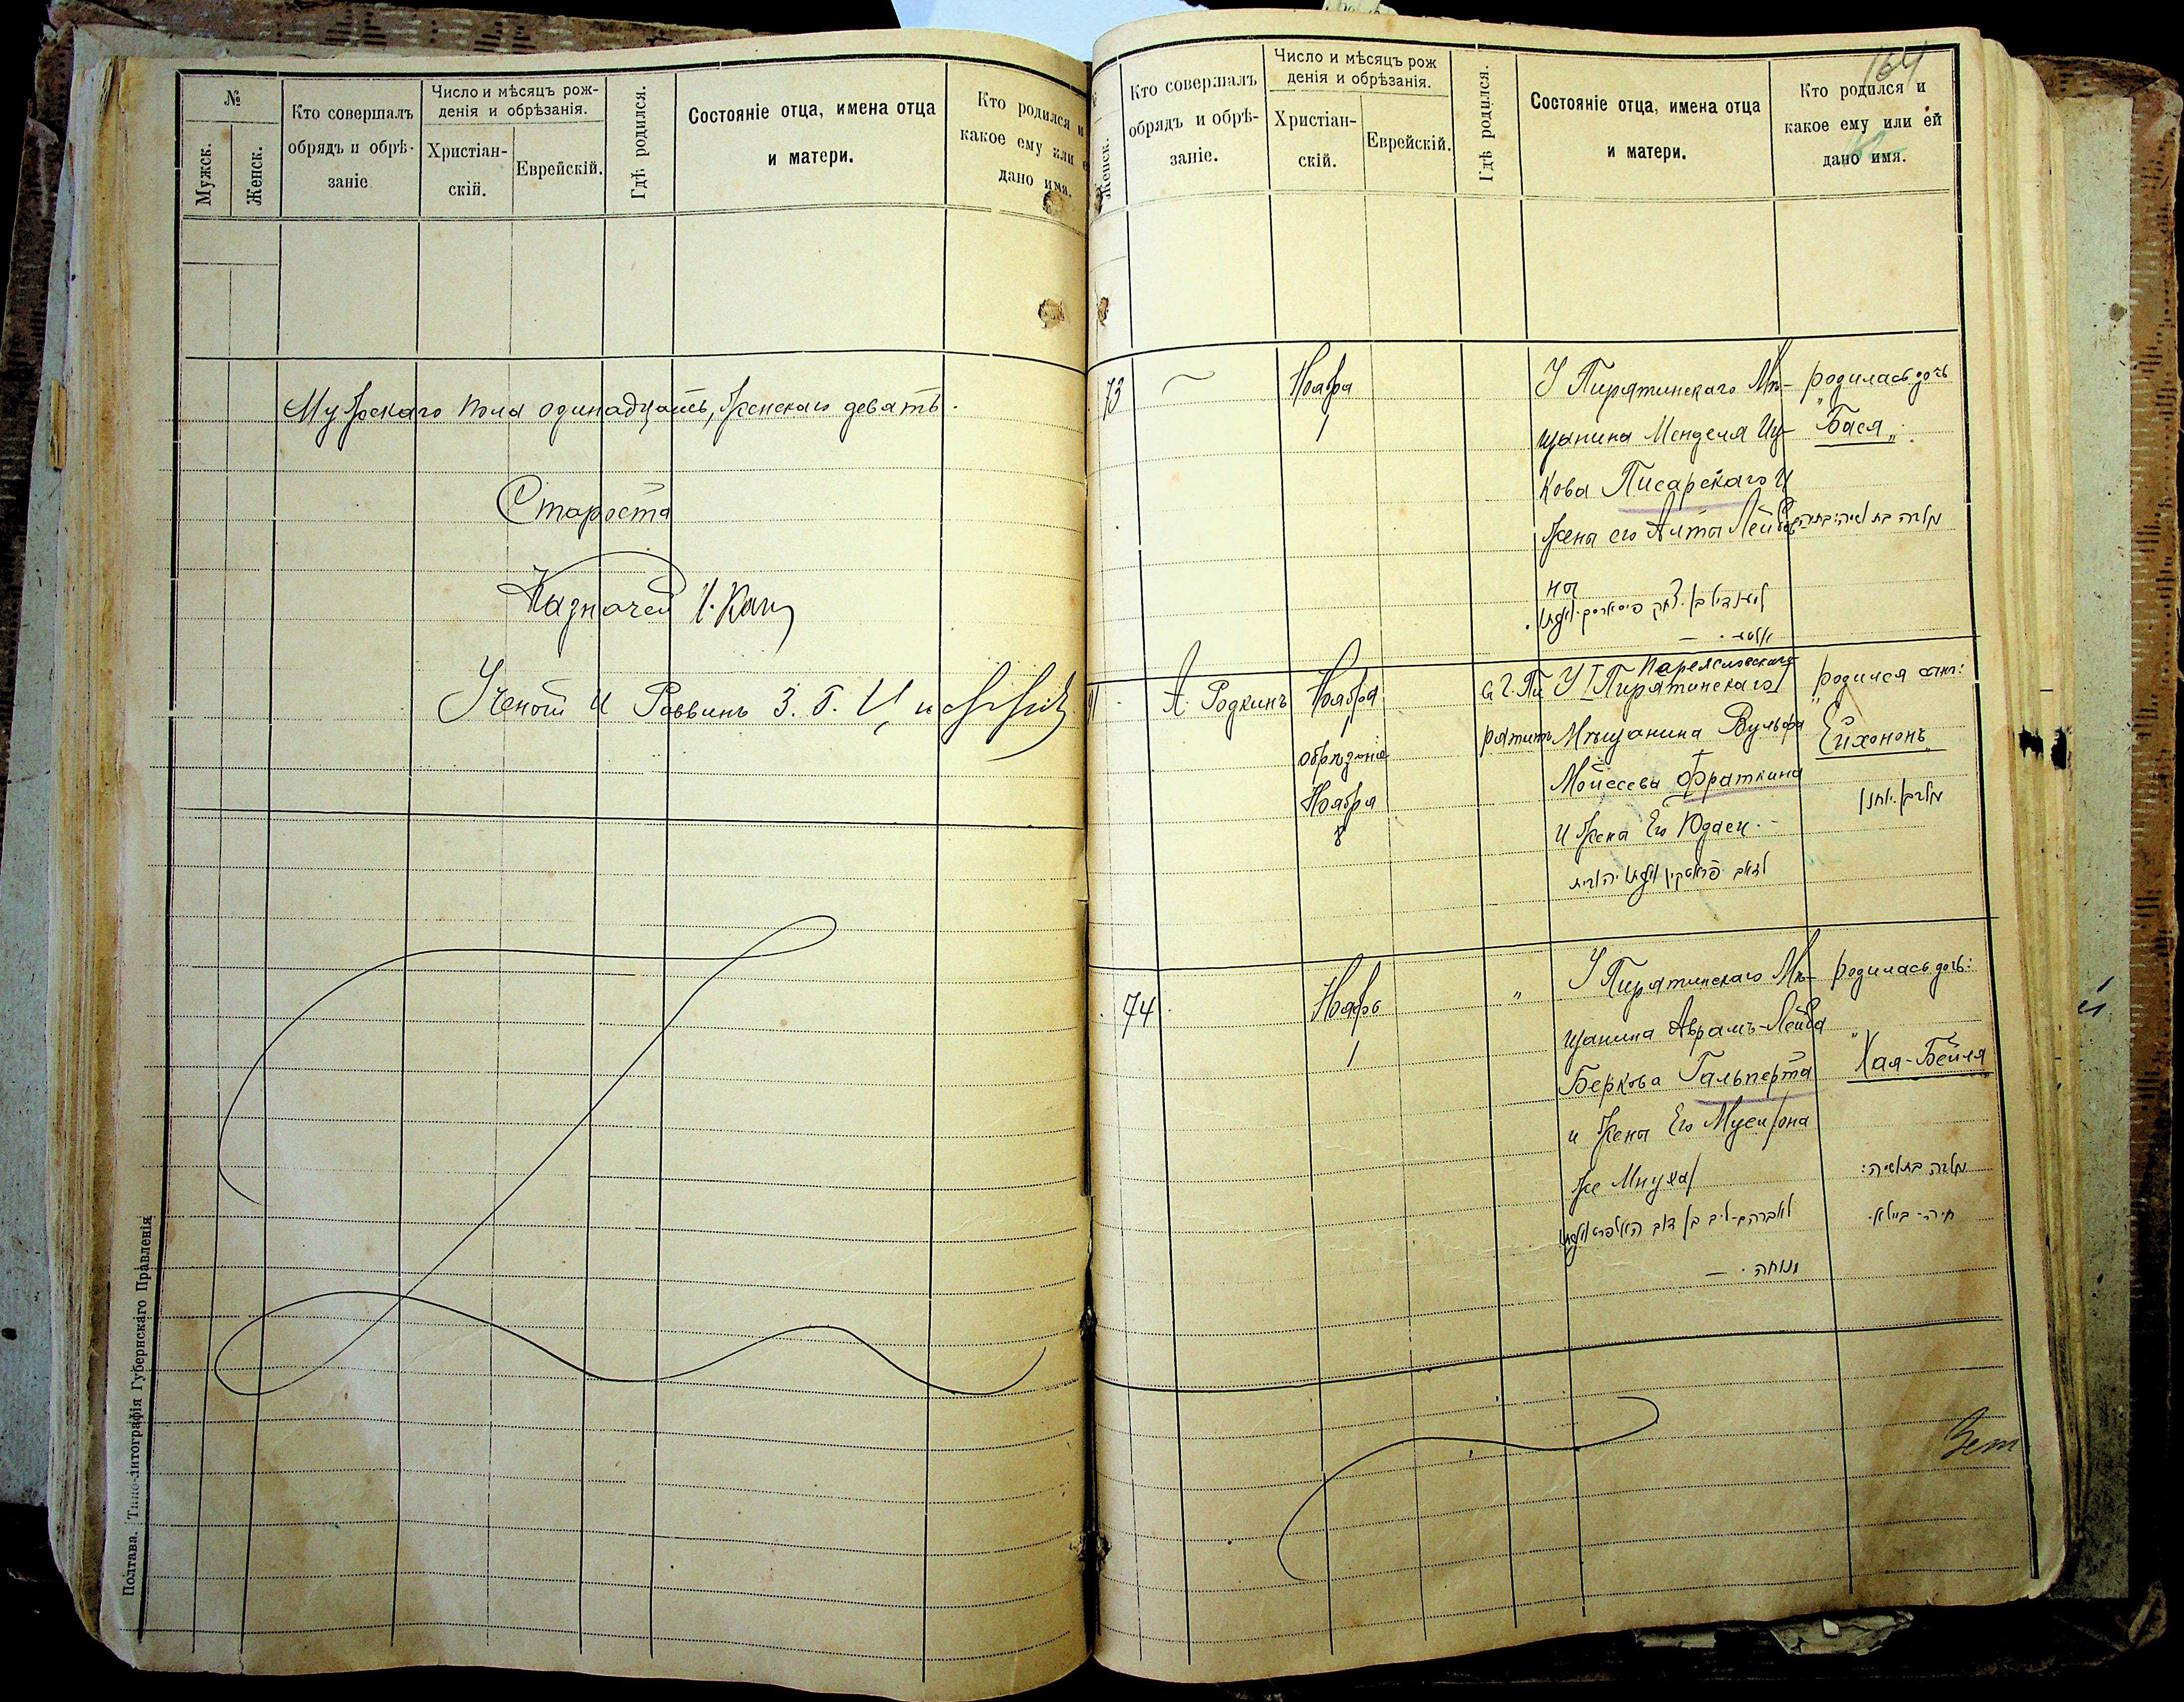 №
Мужск.
Женск.
Кто совершалъ
обрядъ и обрѣ-
заніе
Число и мѣсяцъ рож-
денія и обрѣзанія.
Христіан-
скій.
Еврейскій.
Гдѣ родился.
Состояніе отца, имена отца
и матери.
Кто родился и
какое ему или е
дано имя.
Мужескаго пола одинадцать, женскаго девять.
Староста
Казначей І. Кац
Ученый и Раввинъ З. Б.
Полтава. Типо-литографія Губернскаго Правленія
164
Женск.
Кто совершалъ
обрядъ и обрѣ-
заніе.
Число и мѣсяцъ рож
денія и обрѣзанія.
Христіан-
скій.
Еврейскій.
Гдѣ родился.
Состояніе отца, имена отца
и матери.
Кто родился и
какое ему или ей
дано имя.
73
Ноября
1
У Пирятинскаго Мѣ-
щанина Менделя Иц-
кова Писарскаго и
жена его Алта Лейбов
на
родилась дочь
"Бася"
נולדה בת ושמה בתיה
91
А. Родкинъ
Ноября
1
обрѣзаніе
Ноября
8
в г. Пи
рятинъ
Переяславскаго
У Пирятинскаго
Мѣщанина Вульфа
Мойсеева Фраткина
и жена Его Юдаси
родился сынъ:
"Ейхононъ"
74
Ноября
1
"
У Пирятинскаго Мѣ-
щанина Аврамъ-Лейба
Беркова Гальперта
и жены Его Муси /она
же Мнуха/
לאברהם-ליב בן דוב האלפערט ואשתו
מנוחה. —
родилась дочь:
"Хая-Бейля
נולדה בת ושמה:
חיה-ביילא.